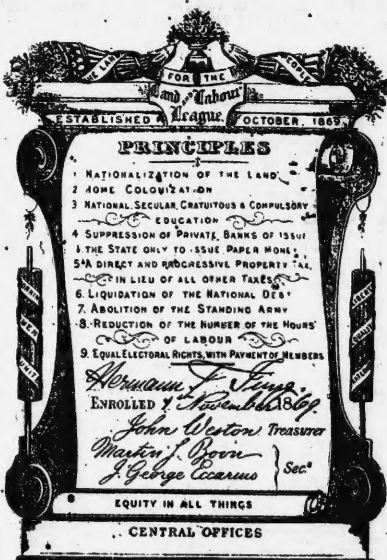 THE LAND
FOR THE
PEOPLE
Land and Labour
League.
ESTABLISHED OCTOBER, 1869
PRINCIPLES
1 NATIONALIZATION OF THE LAND
2 HOME COLONIZATION
3 NATIONAL, SECULAR, GRATUITOUS & COMPULSORY
EDUCATION
4 SUPPRESSION OF PRIVATE BANKS OF ISSUE
THE STATE ONLY TO ISSUE PAPER MONEY
5 A DIRECT AND PROGRESSIVE PROPERTY TAX,
IN LIEU OF ALL OTHER TAXES
6. LIQUIDATION OF THE NATIONAL DEBT
7. ABOLITION OF THE STANDING ARMY
8. REDUCTION OF THE NUMBER OF THE HOURS
OF LABOUR
9. EQUAL ELECTORAL RIGHTS, WITH PAYMENT OF MEMBERS
Hermann F. Jung
ENROLLED 4 November 1869
John Weston Treasurer
Martin J. Boon
J. George Eccarius } Secs
EQUITY IN ALL THINGS
CENTRAL OFFICES